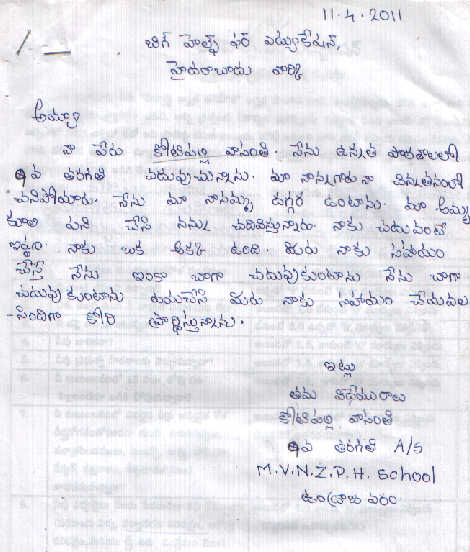 11.4.2011
బిగ్ హెల్ప్ ఫర్ ఎడ్యుకేషన్,
హైదరాబాదు వారికి
అమ్మా
నా పేరు కోటిపల్లి వాసంతి. నేను ఉన్నత పాఠశాలలో
9వ తరగతి చదువుచున్నాను. మా నాన్నగారు నా చిన్నతనంలో
చనిపోయారు. నేను మా నానమ్మ దగ్గర ఉంటాను. మా అమ్మ
కూలి పని చేసి నన్ను చదివిస్తున్నారు. నాకు చదువంటే
ఇష్టం నాకు ఒక అక్క ఉంది. మీరు నాకు సహాయం
చేస్తే నేను ఇంకా బాగా చదువుకుంటాను నేను బాగా
చదువుకుంటాను దయచేసి మీరు నాకు సహాయం చేయవల
-సిందిగా కోరి ప్రార్థిస్తున్నాను.
ఇట్లు
తమ విధేయురాలు
కోటిపల్లి వాసంతి
9వ తరగతి A/s
M.V.N.Z.P.H. School
ఉండ్రాజవరం